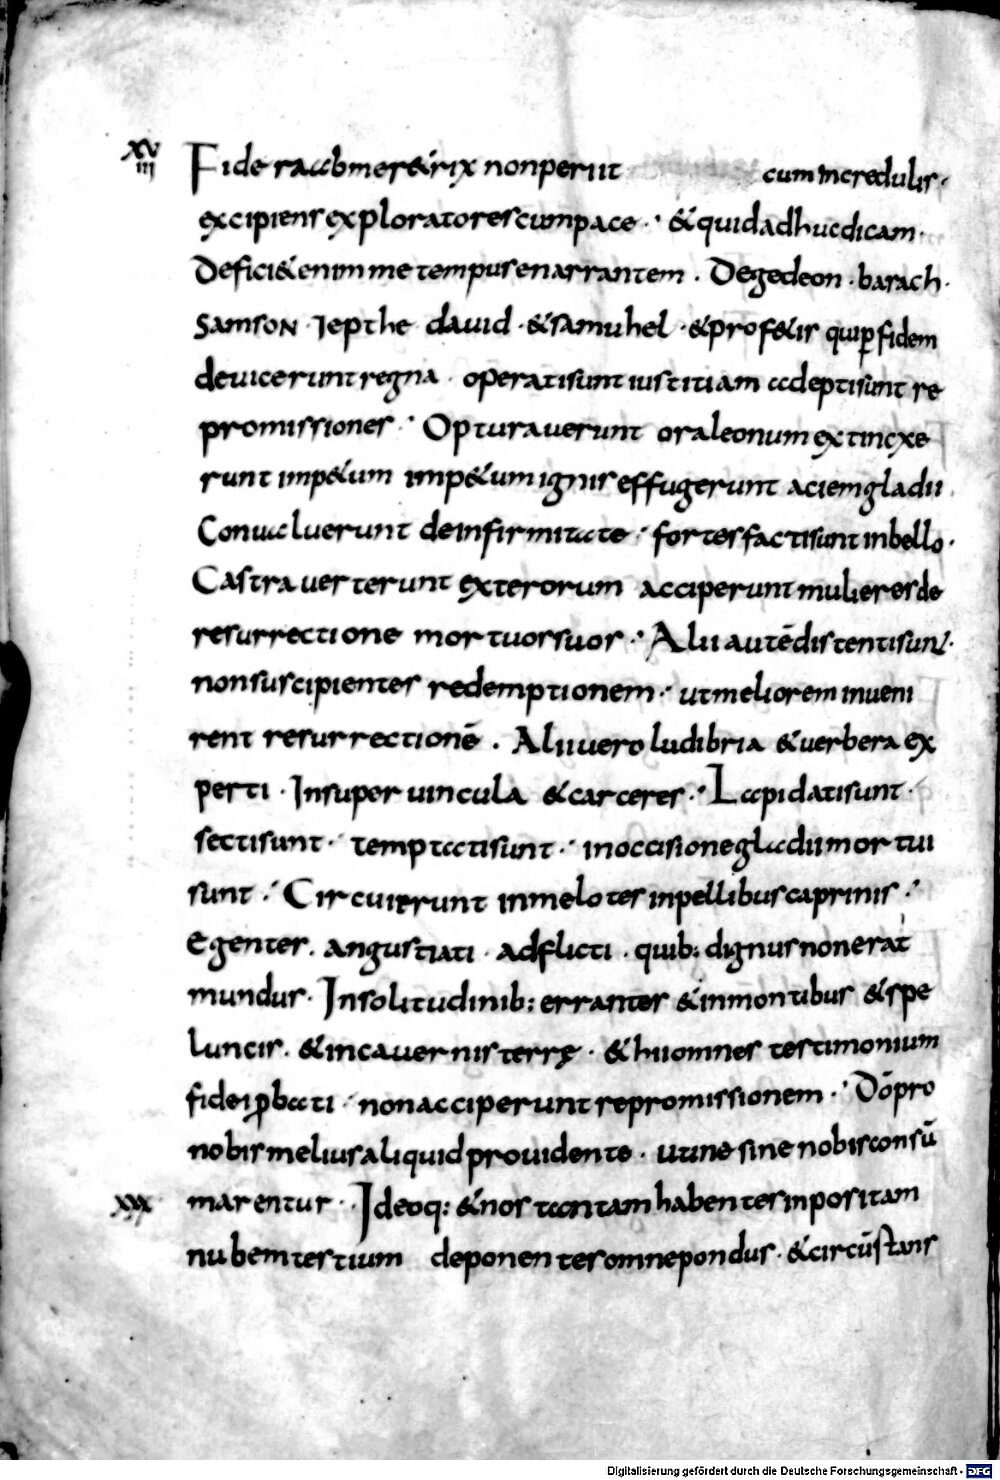 XV
III
Fide raab mer&rix non periit cum incredulis ·
excipiens exploratores cum pace · & quid adhuc dicam ·
Defici& enim me tempus enarrantem . De gedeon · barach ·
Samson · Iepthe david · & samuhel · & prof&is qui p fidem
devicerunt regna · operati sunt iustitiam adepti sunt re
promissiones · Opturaverunt ora leonum extinxe
runt imp&um imp&um ignis effugerunt aciem gladii
Convaluerunt de infirmitate · fortes facti sunt in bello ·
Castra verterunt exterorum acciperunt mulieres de
resurrectione mortuos suos · Alii autē distenti sunt ·
non suscipientes redemptionem · ut meliorem inveni
rent resurrectionē . Alii vero ludibria & verbera ex
perti · Insuper vincula & carceres · Lapidati sunt ·
secti sunt · temptati sunt · in occisione gladii mortui
sunt · Circuierunt in melotes in pellibus caprinis ·
Egentes . angustiati · adflicti · quib: dignus non erat
mundus · In solitudinib: errantes & in montibus & spe
luncis . & in cavernis terrę · & hii omnes testimonium
fidei ꝓbati · non acciperunt repromissionem · Dō pro
nobis melius aliquid providente · ut ne sine nobis consū
XXX
marentur · Ideoq: & nos tantam habentes inpositam
nubem testium deponentes omne pondus · & circūstans
Digitalisierung gefördert durch die Deutsche Forschungsgemeinschaft - DFG